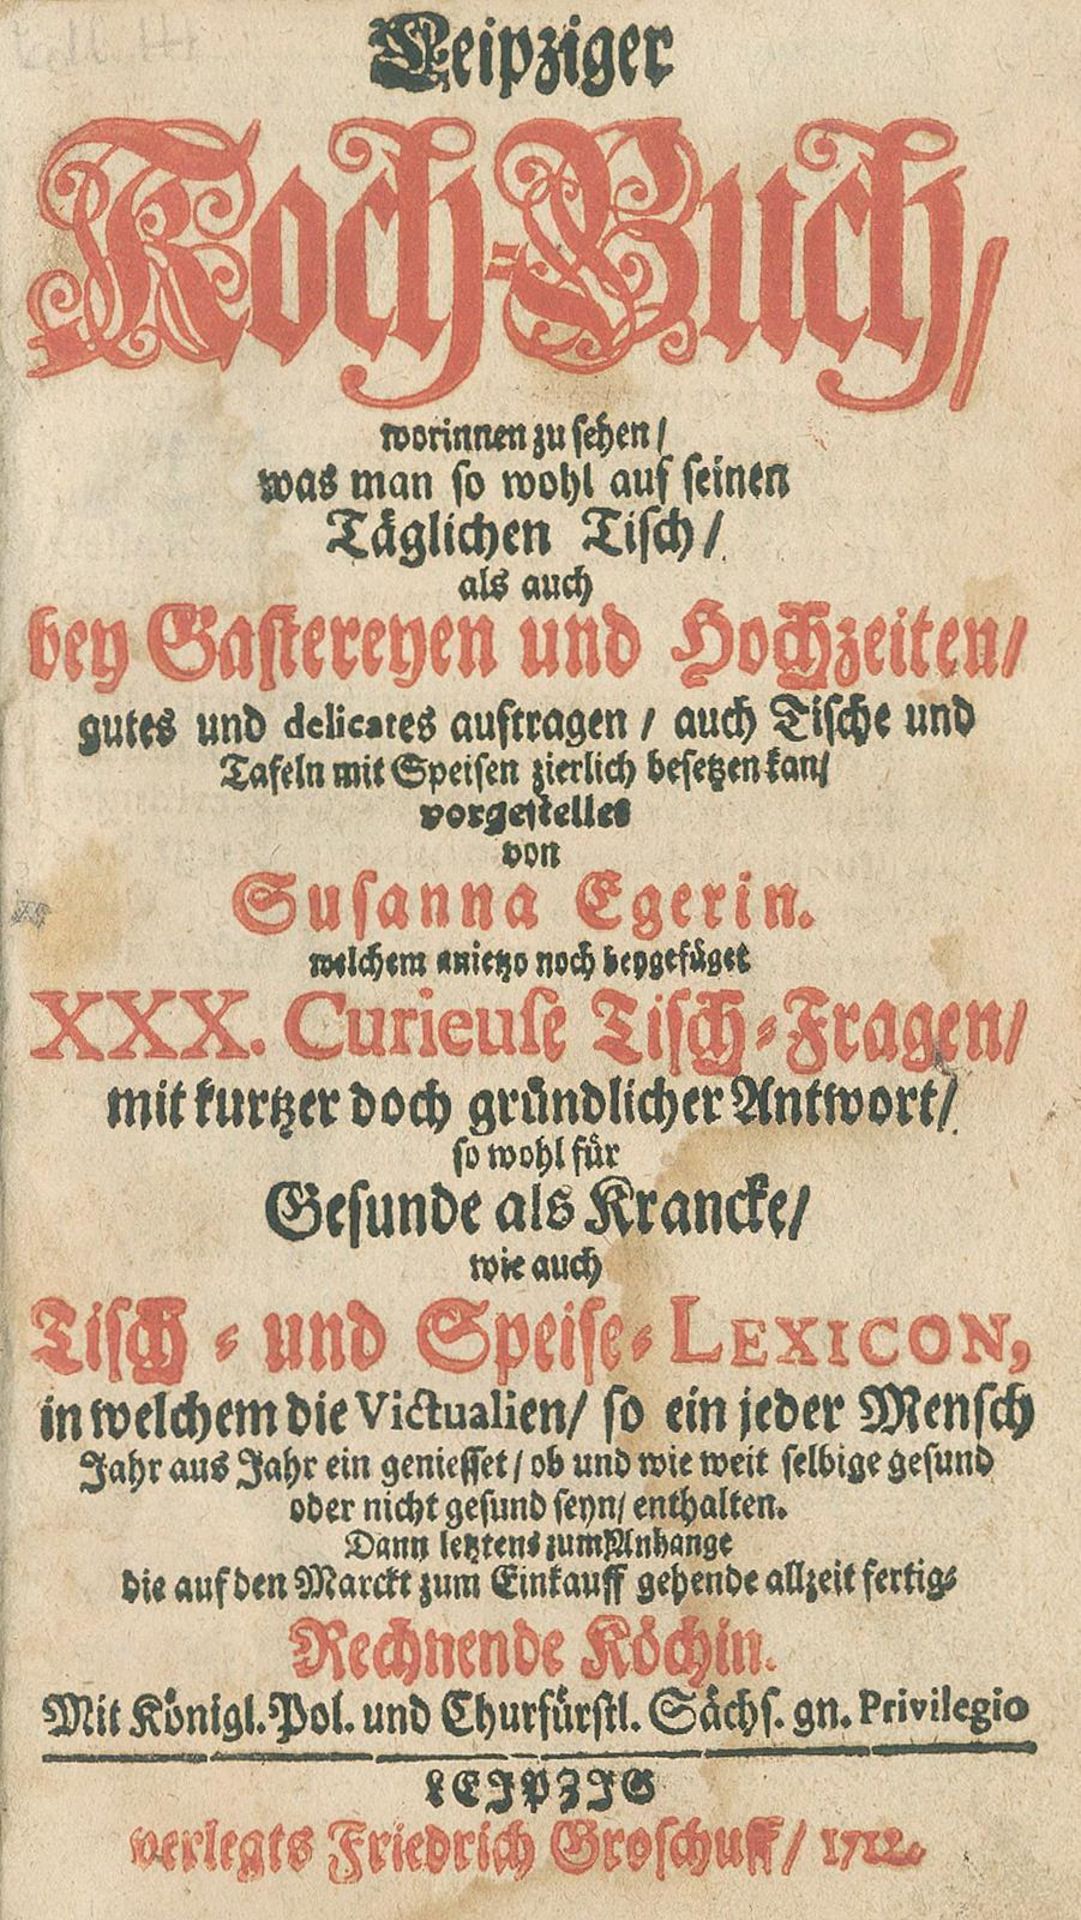 Leipziger
Koch-Buch/
worinnen zu sehen/
was man so wohl auf seinen
Täglichen Tisch/
als auch
bey Gastereyen und Hochzeiten/
gutes und delicates auftragen / auch Tische und
Tafeln mit Speisen zierlich besetzen kan/
vorgestelles
von
Susanna Egerin.
welchem anietzo noch beygefüget
XXX. Curieuse Tisch-Fragen/
mit kurtzer doch gründlicher Antwort/
so wohl für
Gesunde als Krancke/
wie auch
Tisch- und Speise-LEXICON,
in welchem die Victualien/ so ein jeder Mensch
Jahr aus Jahr ein geniesset / ob und wie weit selbige gesund
oder nicht gesund seyn/ enthalten.
Dann letztens zum Anhange
die auf den Marckt zum Einkauff gehende allzeit fertig-
Rechnende Köchin.
Mit Königl. Pol. und Churfürstl. Sächs. gn. Privilegio
LEIPZIG
verlegts Friedrich Groschuff/ 1712.